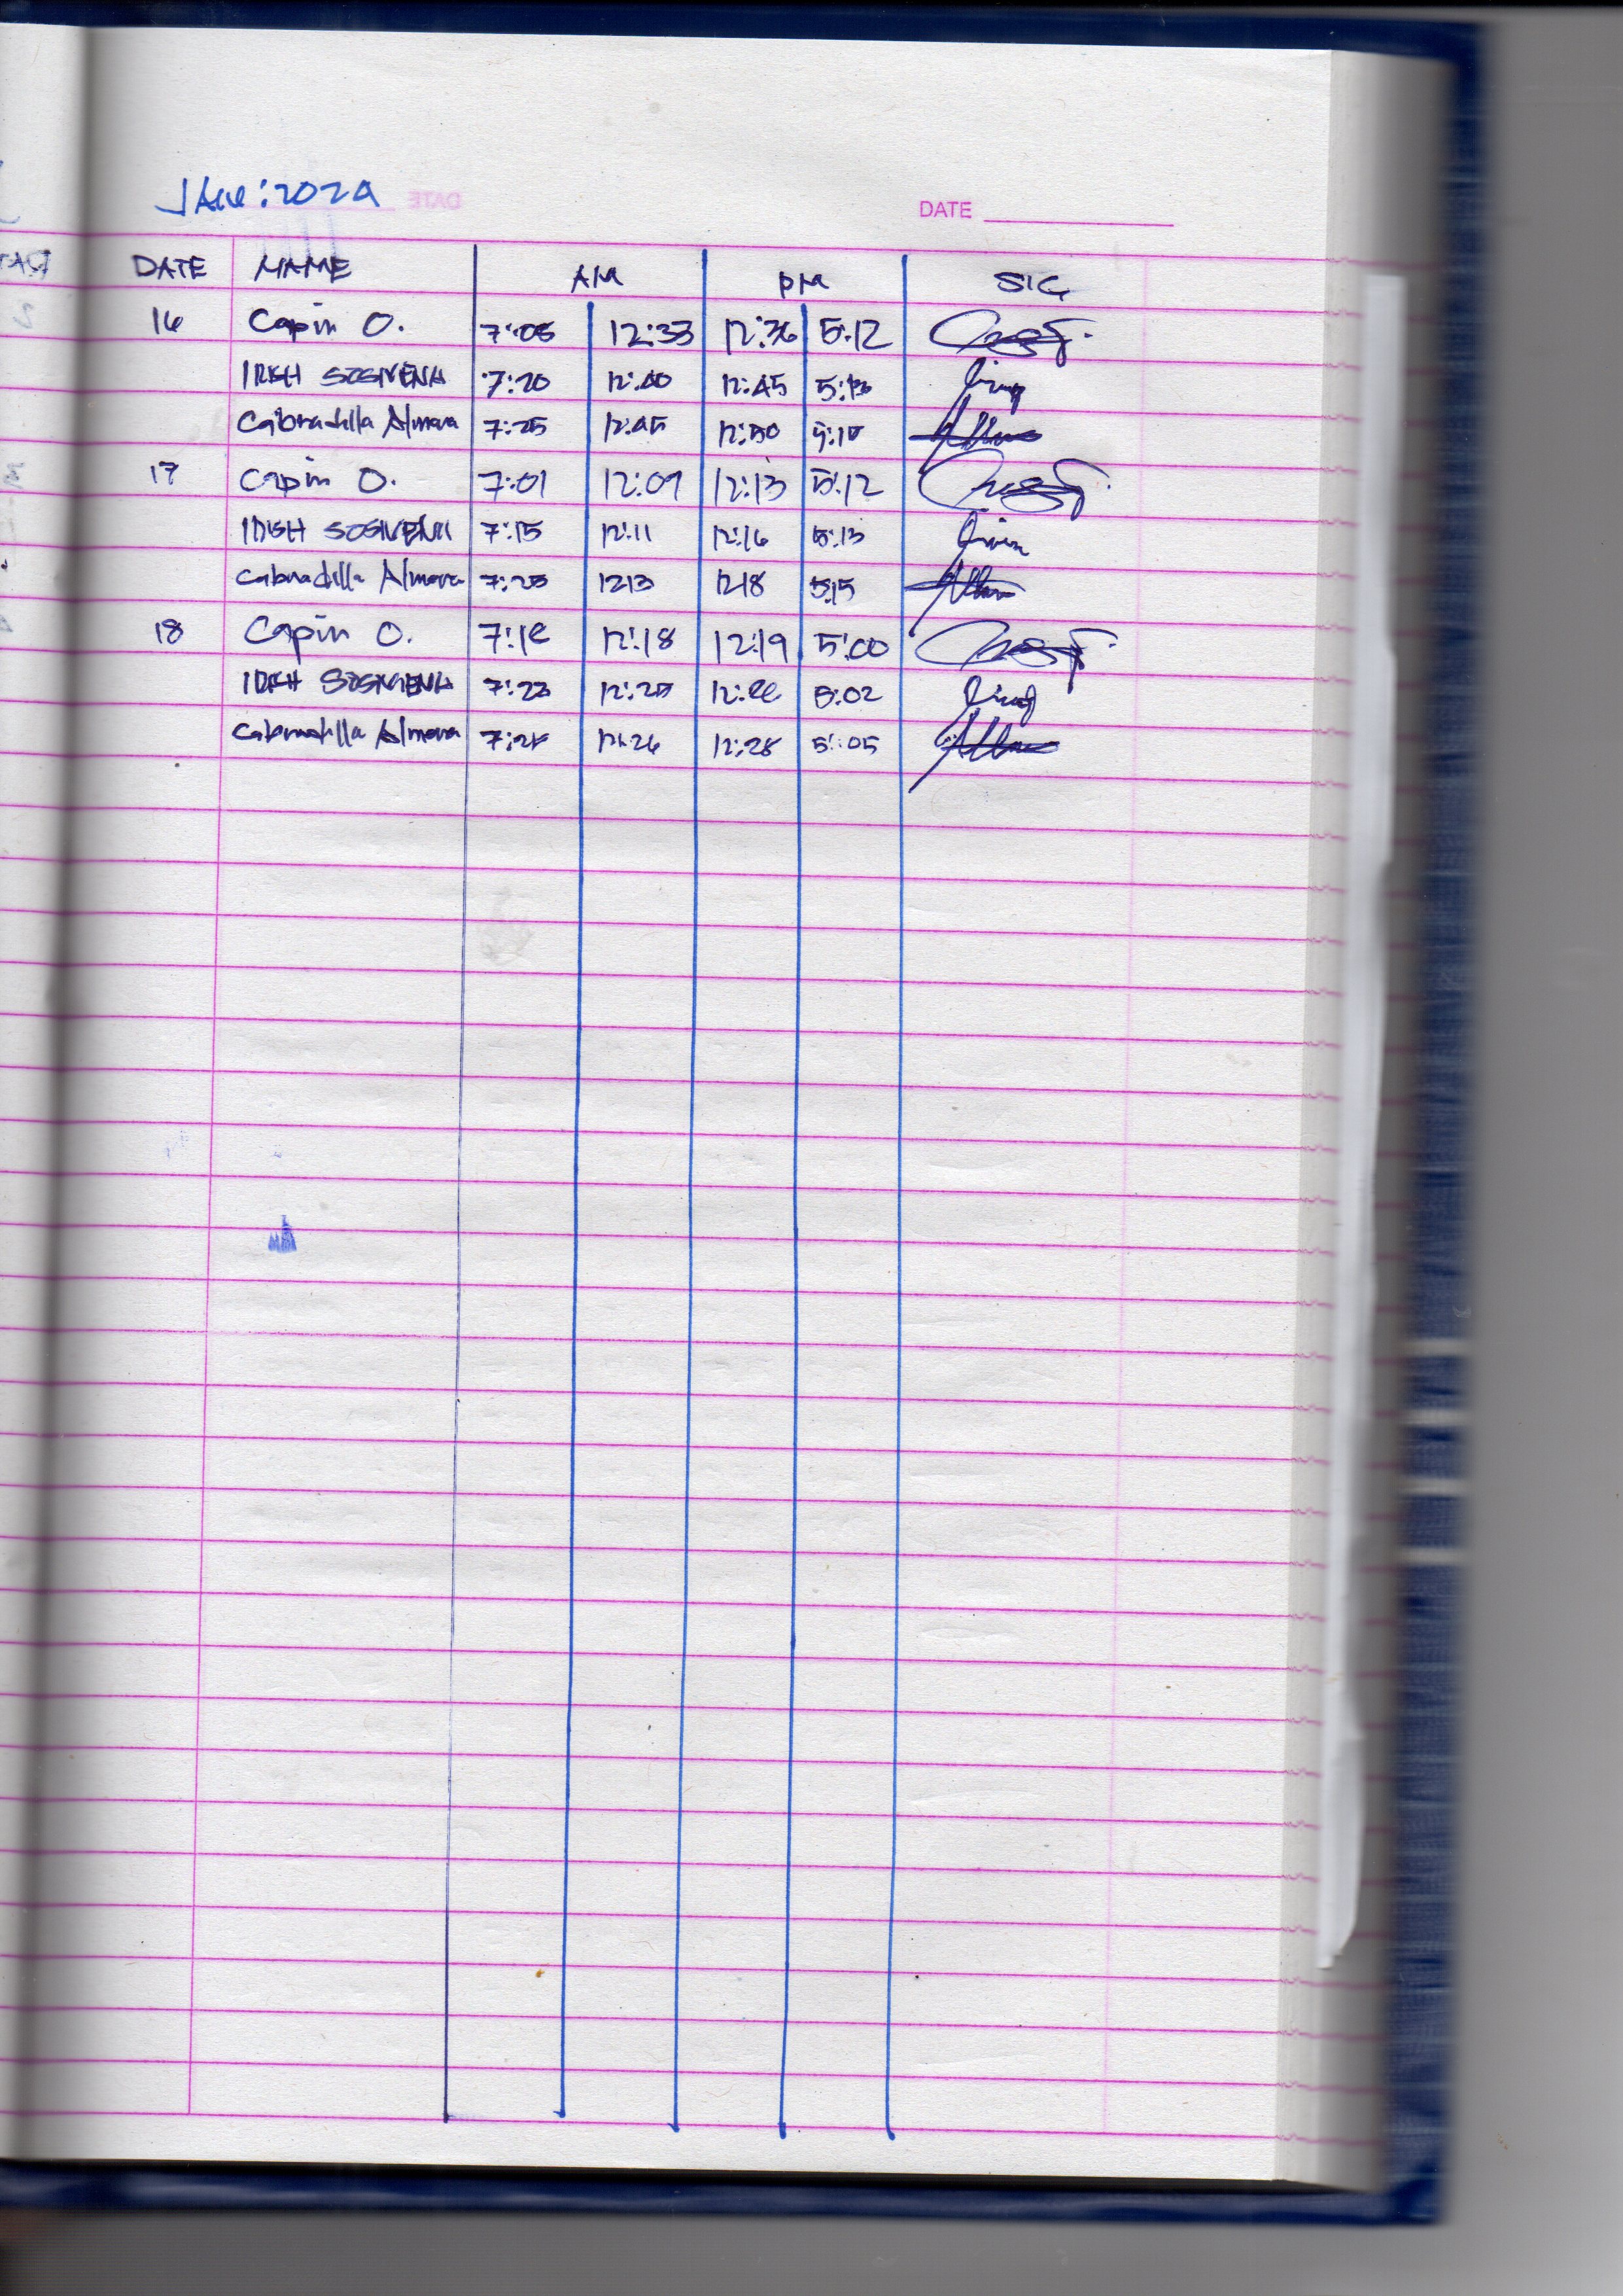 Jan: 2024
DATE
DATE NAME AM PM SIG
16 Capin O. 7:05 12:33 12:36 5:12
IRISH SOSIVENA 7:20 12:40 12:45 5:13
Cabradilla Almera 7:25 12:45 12:50 5:15
17 Capin O. 7:01 12:09 12:13 5:12
IRISH SOSIVENA 7:15 12:11 12:16 5:13
Cabradilla Almera 7:25 1213 1218 5:15
18 Capin O. 12:18 12:19 5:00
IRISH SOSIVENA 7:23 12:20 12:22 5:02
Cabradilla Almera 12:26 12:28 5:05